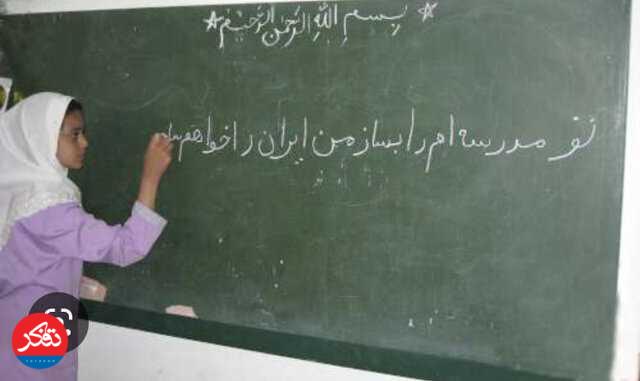 بِسمِ اللهِ الرَّحمنِ الرَّحیم
تو مدرسه ام را بساز من ایران را خواهم
تفکر